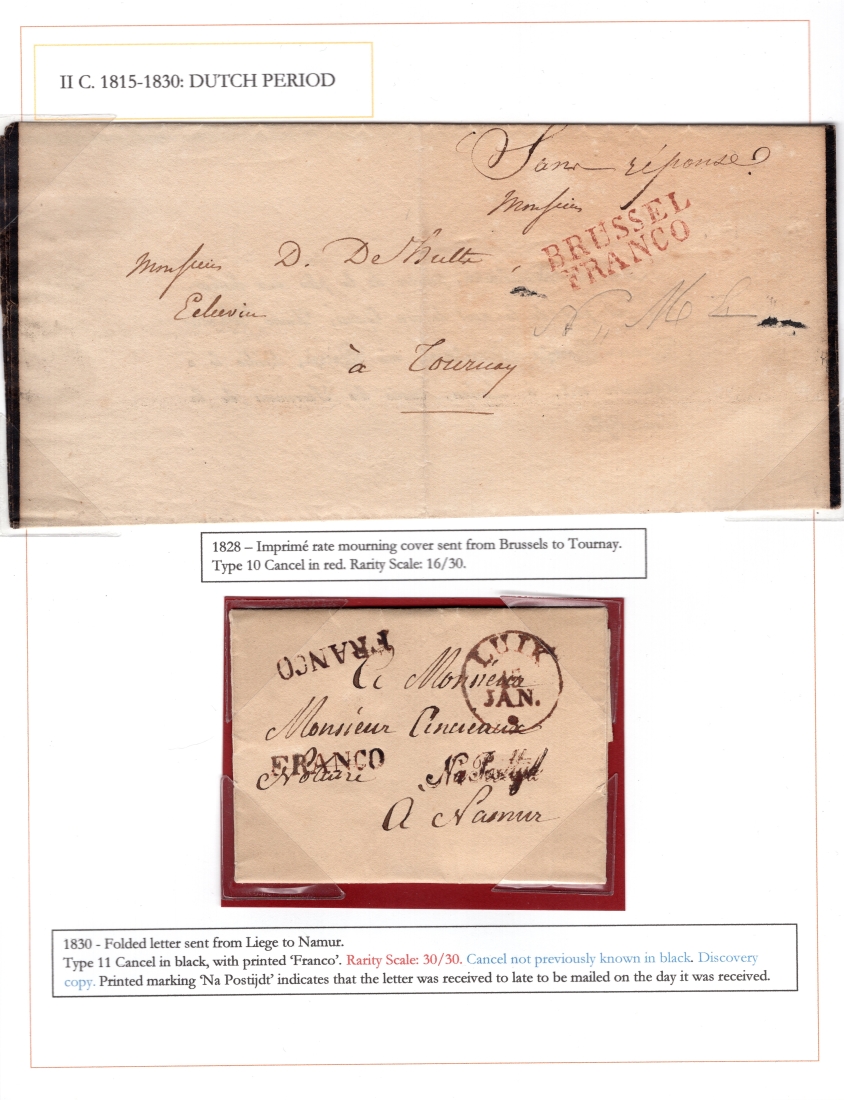 II C. 1815-1830: DUTCH PERIOD
Sans réponse
Monsieur
BRUSSEL
FRANCO
Monsieur D.
à Tournay
1828 – Imprimé rate mourning cover sent from Brussels to Tournay.
Type 10 Cancel in red. Rarity Scale: 16/30.
FRANCO
LUIK
JAN.
A Monsieur
Monsieur
FRANCO
Notaire
A Namur
1830 - Folded letter sent from Liege to Namur.
Type 11 Cancel in black, with printed ‘Franco’. Rarity Scale: 30/30. Cancel not previously known in black. Discovery
copy. Printed marking ‘Na Postijdt’ indicates that the letter was received to late to be mailed on the day it was received.